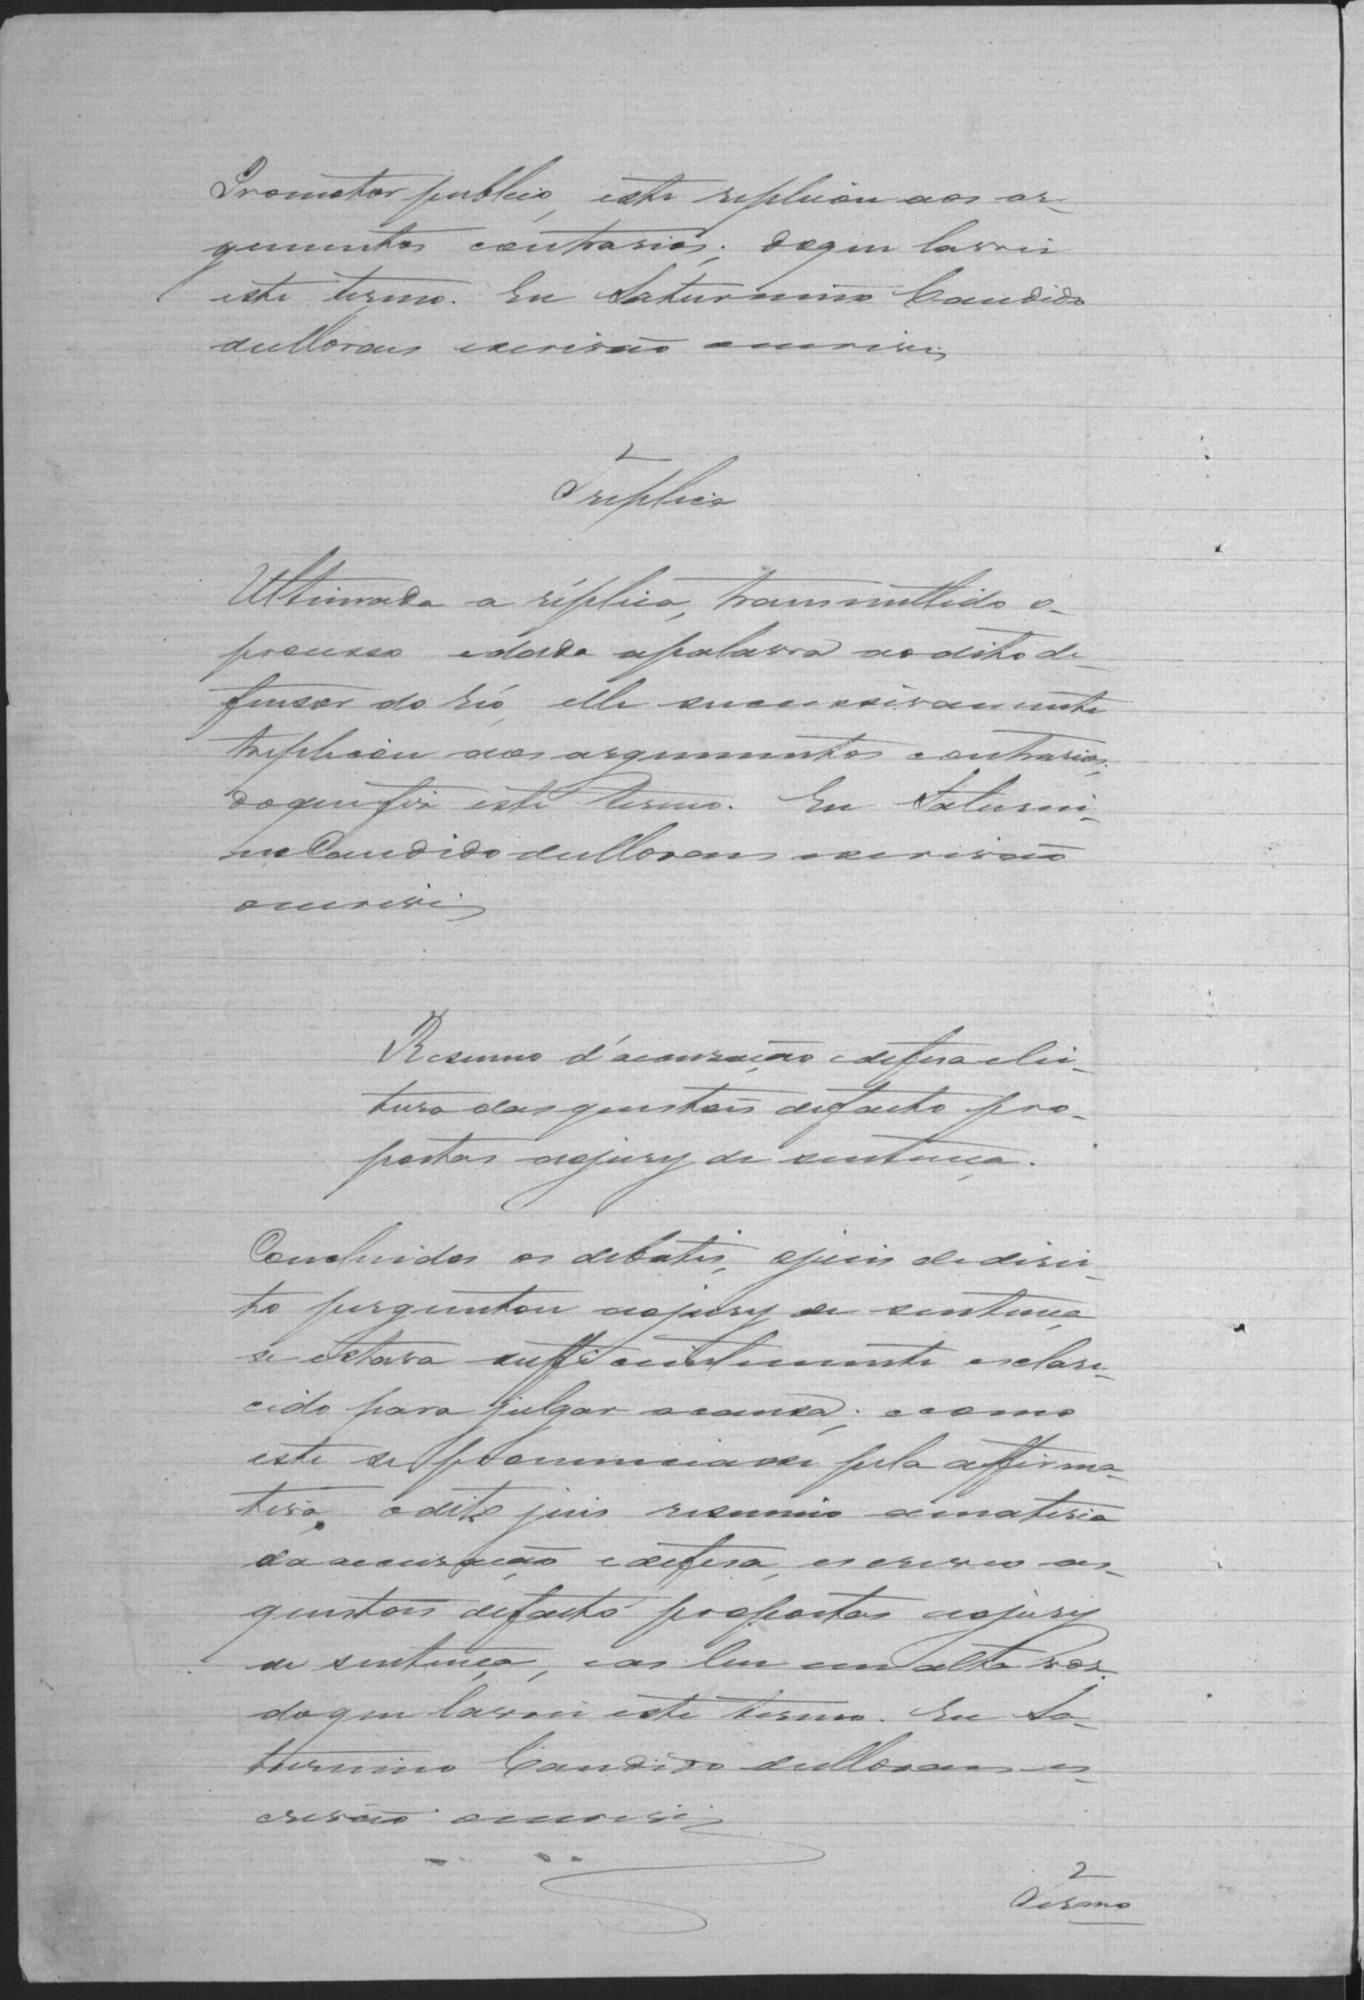 Promotor publico, este replicou aos ar-
gumentos contrarios; do que lavrei
este termo. Eu Saturnino Candido
de Moraes escrivão o escrevi
Treplica
Ultimada a réplica, transmettido o
processo e dada a palavra ao dito de-
fensor do réo, elle successivamente
treplicou aos argumentos contrarios;
do que fiz este termo. Eu Saturni-
no Candido de Moraes escrivão
o escrevi
Resumo d'accusação e defesa e lei-
tura das questões de facto pro-
postas ao jury de sentença.
Concluidos os debates, o juis de direi-
to perguntou ao jury de sentença
se estava sufficientemente esclare-
cido para julgar a causa; e como
este se pronunciasse pela affirma-
tiva, o dito juis resumio a materia
da accusação e defesa, escreveu as
questões de facto propostas ao jury
de sentença, e as leu em alta vos.
do que lavrei este termo. Eu Sa-
turnino Candido de Moraes es-
crivão o escrevi
Termo